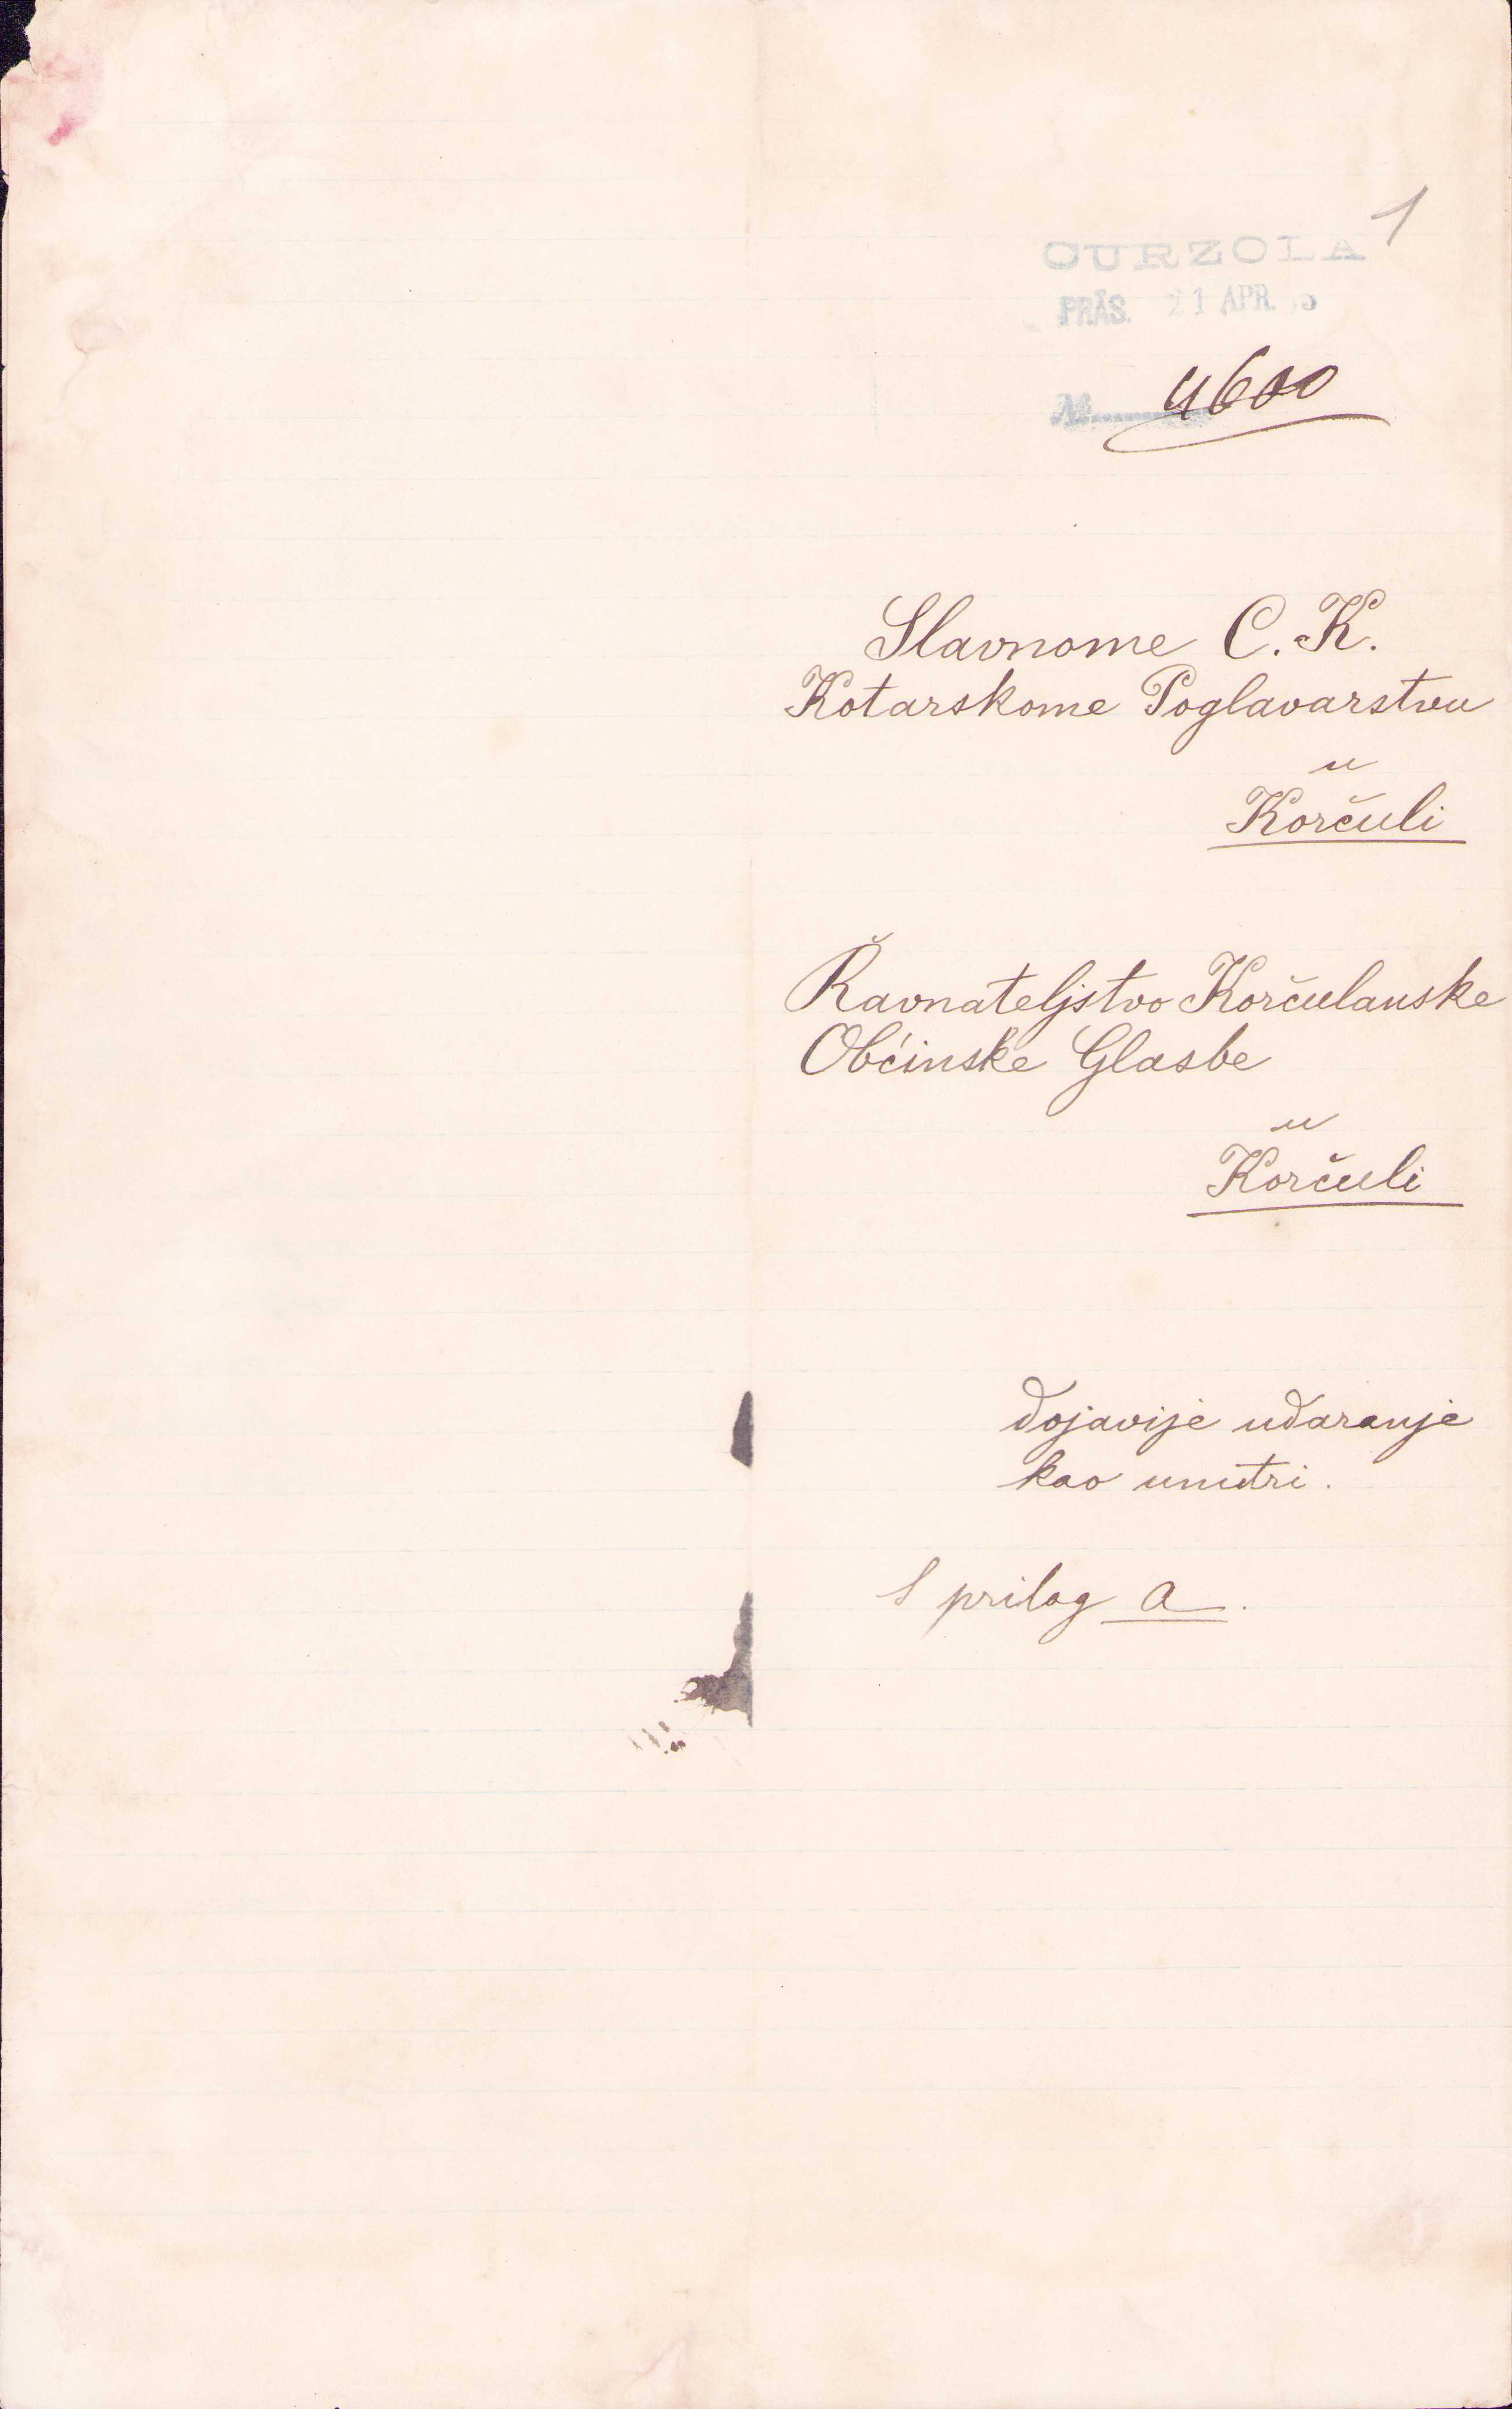 1
CURZOLA
PRÄS. 21 APR.
No 4600
Slavnome C. K.
Kotarskome Poglavarstvu
u
Korčuli
Ravnateljstvo Korčulanske
Obćinske Glasbe
u
Korčuli
dojavije udaranje
kao unutri.
1 prilog a.